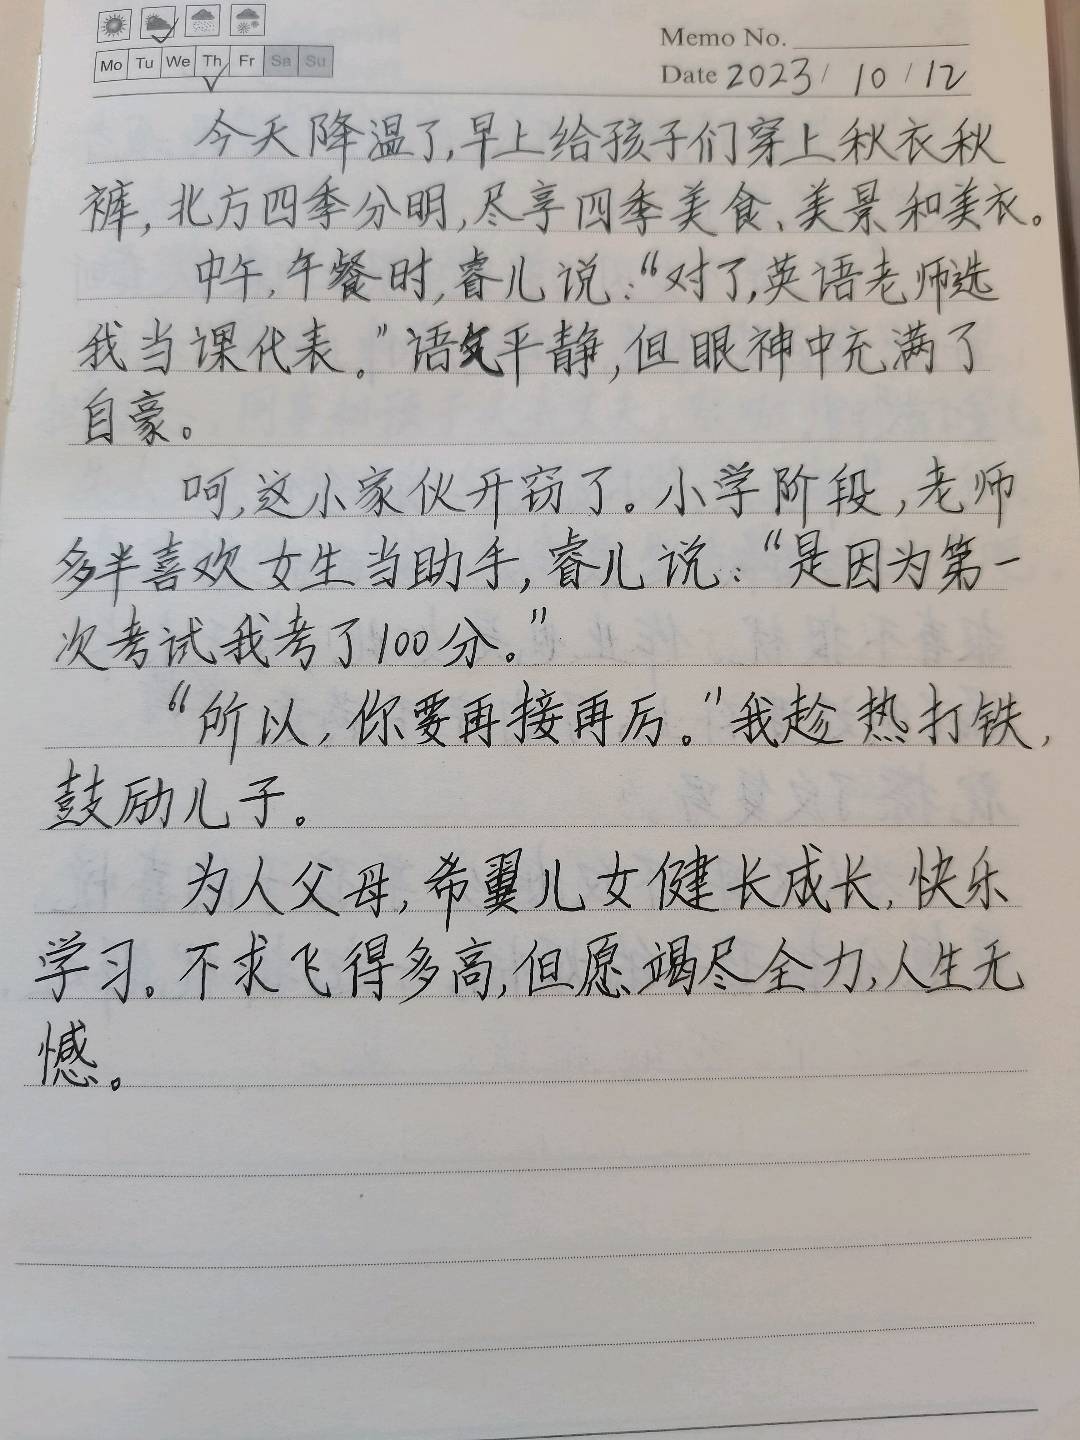 Memo No.
Mo Tu We Th Fr Sa Su
Date 2023 / 10 / 12
今天降温了,早上给孩子们穿上秋衣秋
裤,北方四季分明,尽享四季美食、美景和美衣。
中午,午餐时,睿儿说:“对了,英语老师选
我当课代表。”语气平静,但眼神中充满了
自豪。
呵,这小家伙开窍了。小学阶段,老师
多半喜欢女生当助手,睿儿说:“是因为第一
次考试我考了100分。”
“所以,你要再接再厉。”我趁热打铁,
鼓励儿子。
为人父母,希翼儿女健长成长,快乐
学习。不求飞得多高,但愿竭尽全力,人生无
憾。